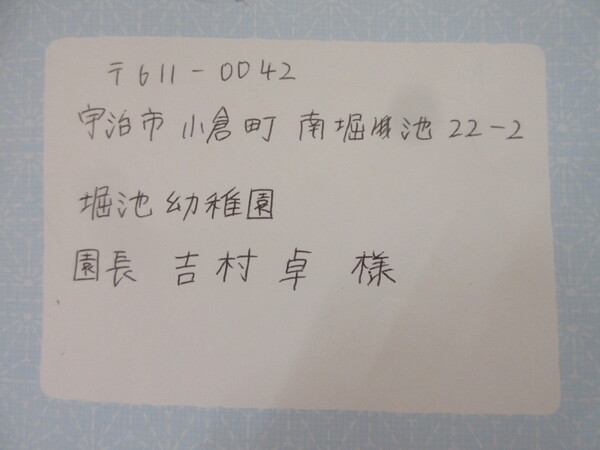 〒611-0042
宇治市 小倉町 南堀池 22-2
堀池 幼稚園
園長 吉村 卓 様